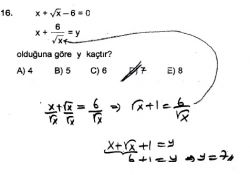 16. x + √x – 6 = 0
x + 6/√x = y
olduğuna göre y kaçtır?
A) 4 B) 5 C) 6 D) 7 E) 8
x/√x + √x/√x = 6/√x ⇒ √x + 1 = 6/√x
x + √x + 1 = y
6 + 1 = y ⇒ y = 7